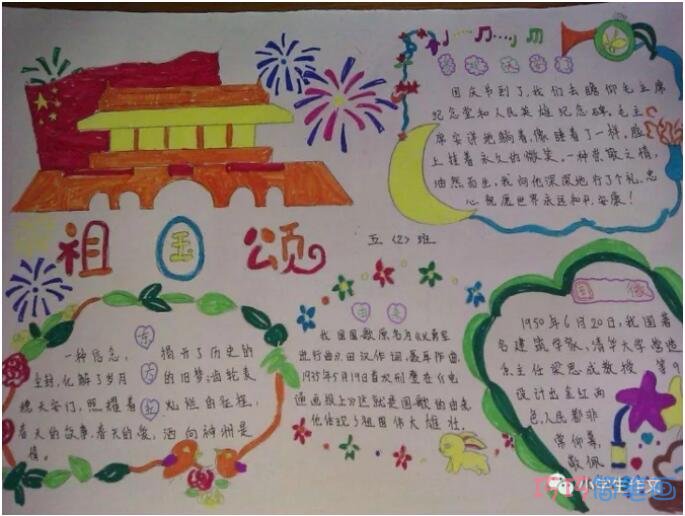 祖国颂
五〈2〉班
国庆节到了,我们去瞻仰毛主席
纪念堂和人民英雄纪念碑。毛主
席安详地躺着,像睡着了一样,脸
上挂着永久的微笑,一种崇敬之情,
油然而生,我向他深深地行了个礼,忠
心祝愿世界永远和平,安康!
东方红
一种信念, 揭开了历史的
尘封,化解了岁月 的旧梦;齿轮麦
穗天安门,照耀着 灿烂的征程,
春天的故事.春天的爱,洒向神州是
情。
国歌
我国国歌原名为《义勇军
进行曲》,田汉作词,聂耳作曲,
1935年5月19日首次刊登在《电
通画报上》这就是国歌的由来
他体现了祖国伟大雄壮。
国徽
1950年6月20日,我国著
名建筑学家,清华大学营造
系主任梁思成教授 第9
设计出金红两
色,人民都非
常仰慕,
敬佩
小学生作文
巧巧简笔画